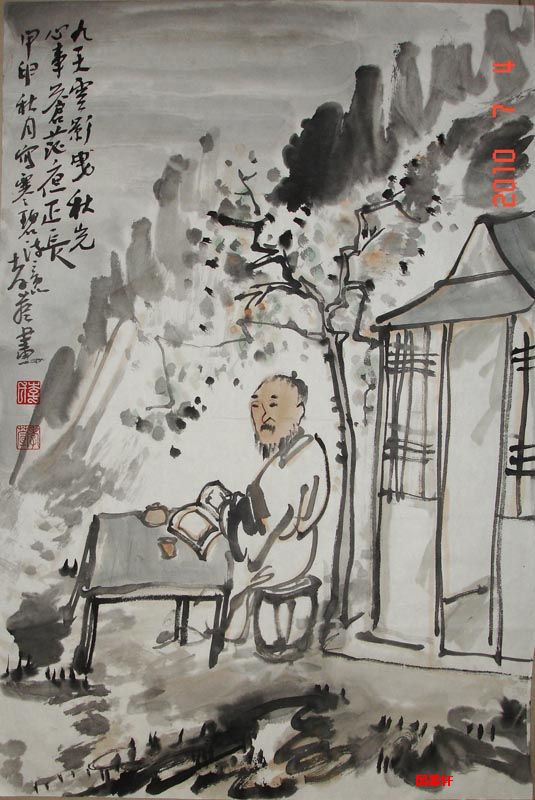 九天雲影曳秋光
心事蒼茫夜正長
秋月寫寒碧詩意
畫
2010 7 4